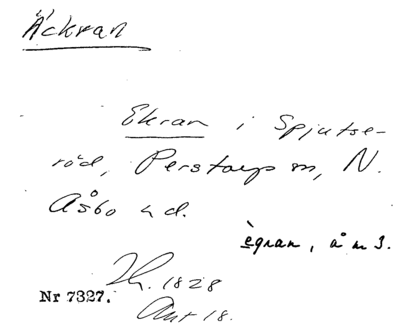 Äckran
Ekran i Spjutse-
röd, Perstorps sn, N.
Åsbo hd.
ègran, å m 3.
1828
Nr 7327.
Akt 18.